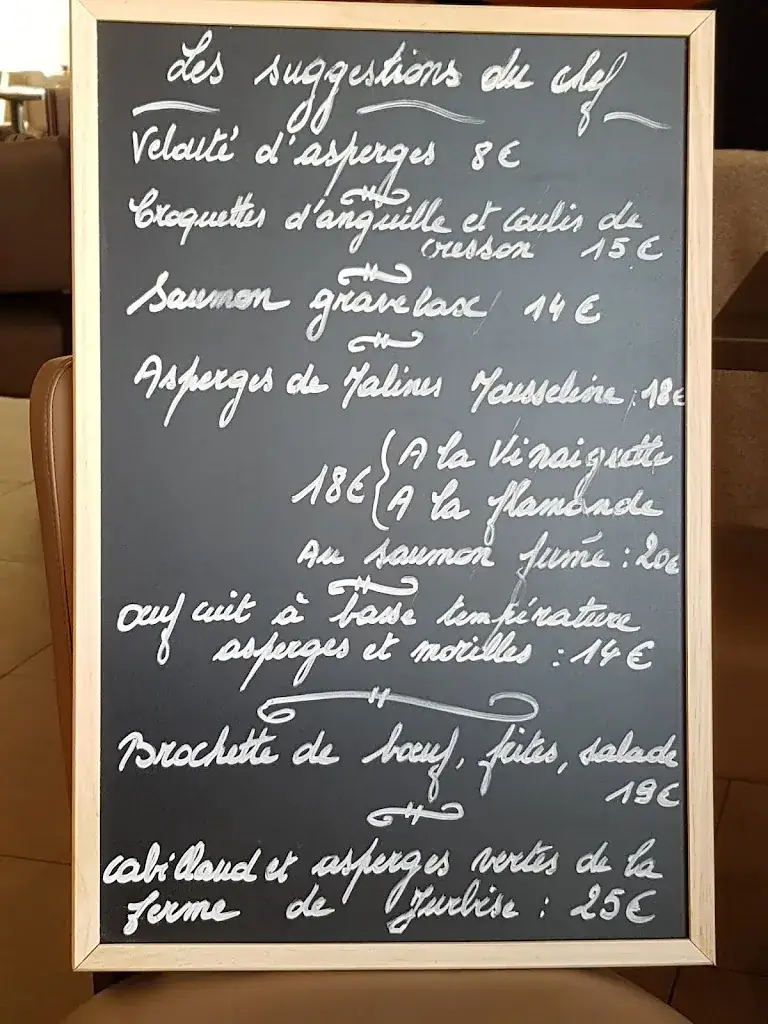 Les suggestions du chef
Velouté d'asperges 8€
Croquettes d'anguille et coulis de
cresson 15€
Saumon gravelax 14€
Asperges de Malines Mousseline : 18€
18€ { A la Vinaigrette
A la flamande
Au saumon fumé : 20€
œuf cuit à basse température
asperges et morilles : 14€
Brochette de bœuf, frites, salade
19€
Cabillaud et asperges vertes de la
ferme de Jurbise : 25€